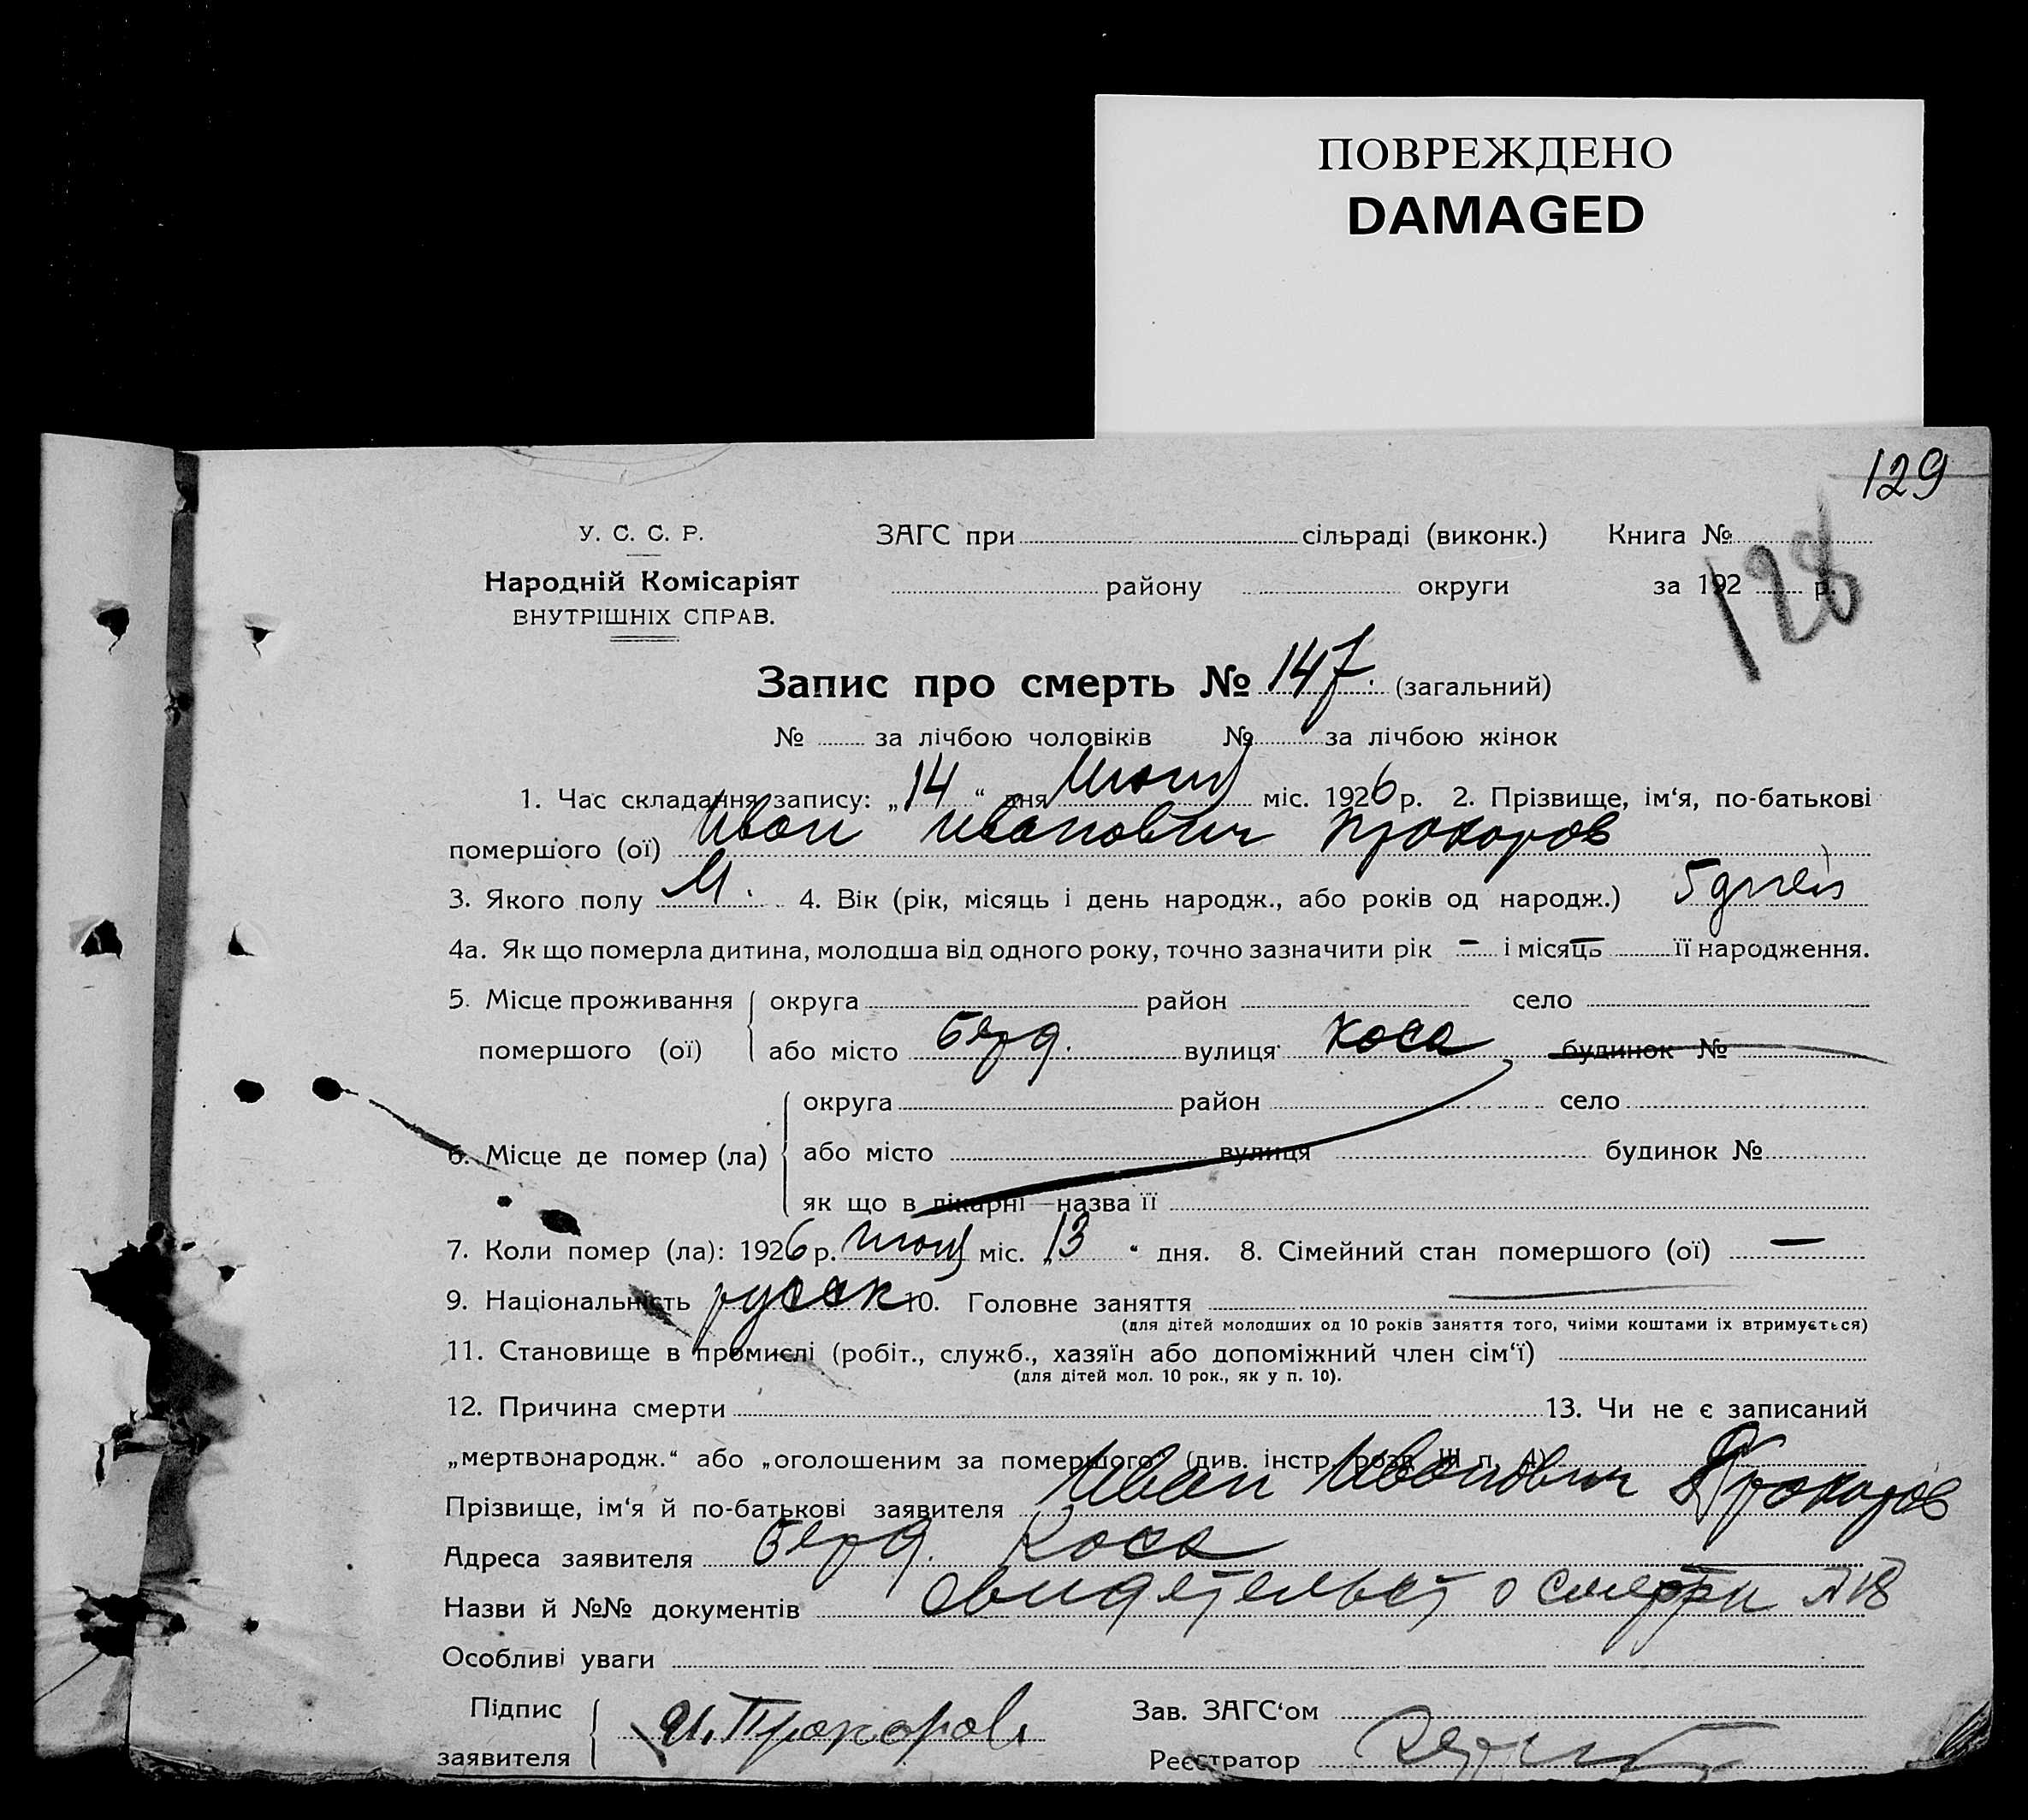 ПОВРЕЖДЕНО
DAMAGED
129
У. С. С. Р. ЗАГС при сільраді (виконк.) Книга №
128
Народній Комісаріят району округи за 192 р.
ВНУТРІШНІХ СПРАВ.
Запис про смерть № 147. (загальний)
№ за лічбою чоловіків № за лічбою жінок
1. Час складання запису: „14“ дня міс. 1926 р. 2. Прізвище, ім‘я, по-батькові
помершого (ої) Иван Иванович Прохоров
3. Якого полу М. 4. Вік (рік, місяць і день народж., або років од народж.) 5 дней
4а. Як що померла дитина, молодша від одного року, точно зазначити рік – і місяць – її народження.
5. Місце проживання округа район село
помершого (ої) або місто Берд. вулиця Коса будинок №
округа район село
6. Місце де помер (ла) або місто вулиця будинок №
як що в лікарні—назва її
7. Коли помер (ла): 1926 р. міс. „13“ дня. 8. Сімейний стан помершого (ої) —
9. Національність русск 10. Головне заняття —
(для дітей молодших од 10 років заняття того, чиїми коштами їх втримується)
11. Становище в промислі (робіт., служб., хазяїн або допоміжний член сім‘ї)
(для дітей мол. 10 рок., як у п. 10).
12. Причина смерти 13. Чи не є записаний
„мертвонародж.“ або „оголошеним за помершого“ (див. інстр. розд. III п. 4)
Прізвище, ім‘я й по-батькові заявителя Иван Иванович Прохоров
Адреса заявителя Берд. Коса
Назви й №№ документів свидетельст о смерти № 18
Особливі уваги
Підпис Зав. ЗАГС‘ом
И. Прохоров.
заявителя Реєстратор